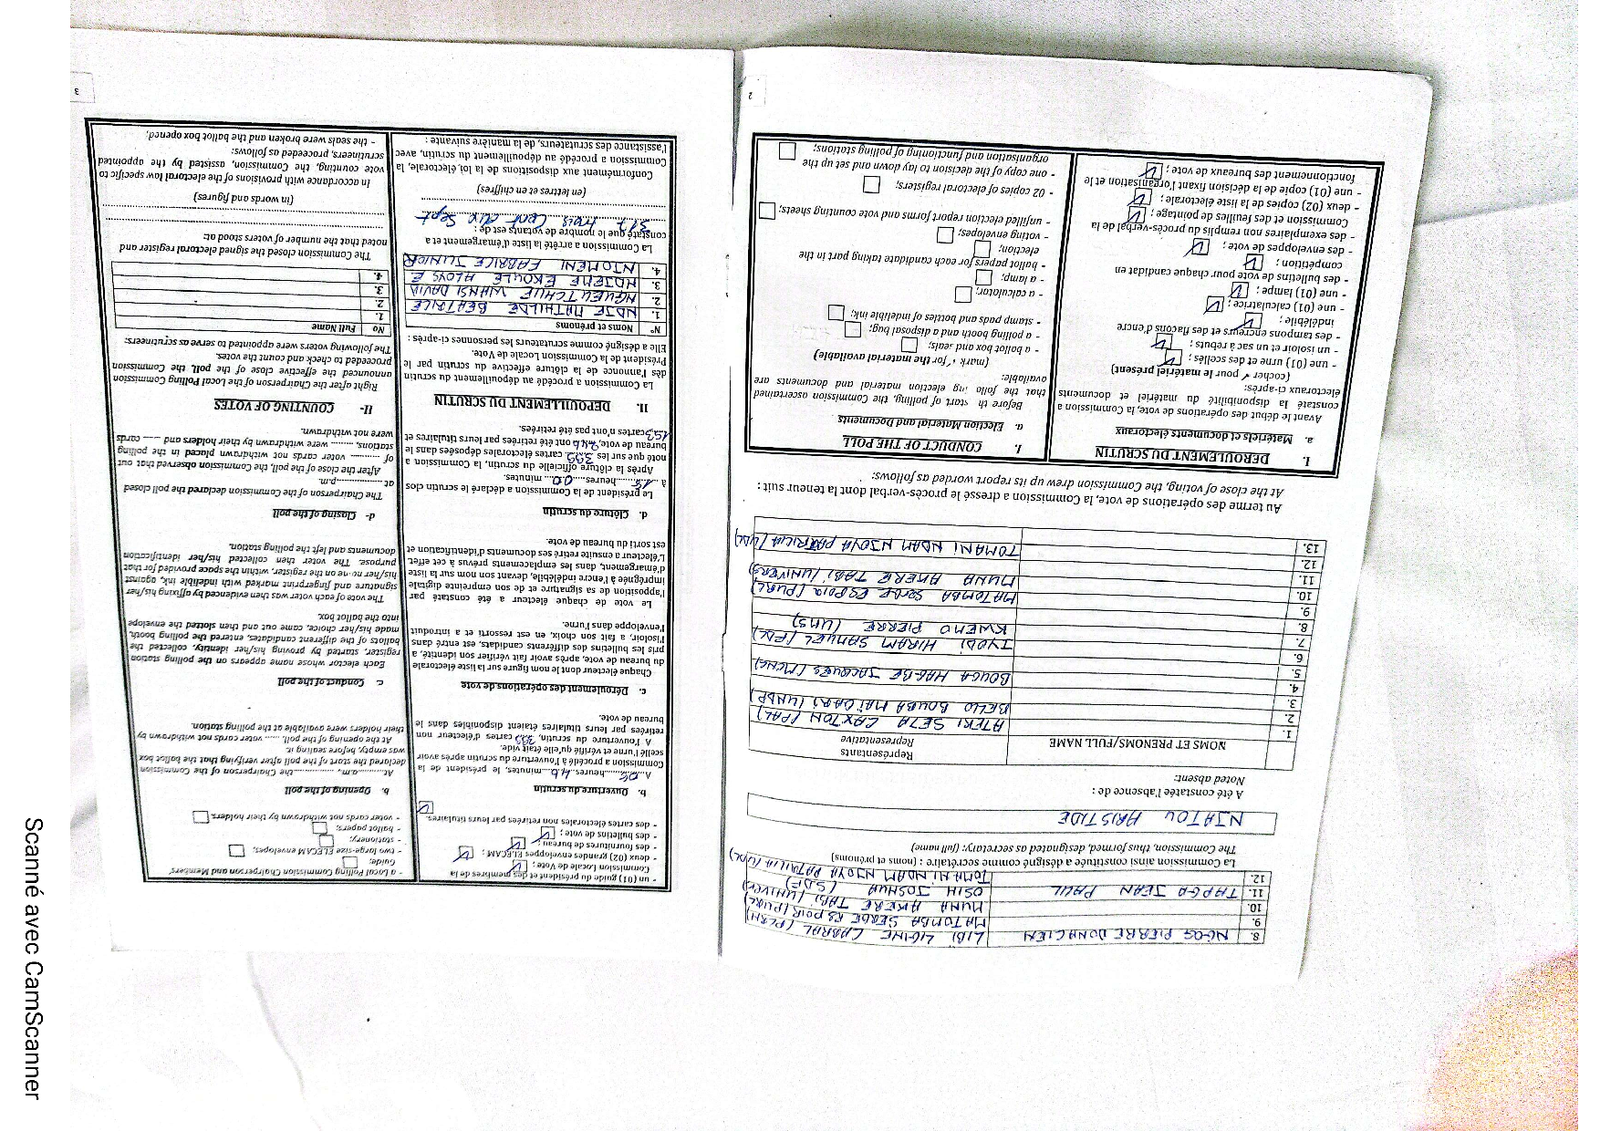 8. NGOS PIERRE DONACIEN LIBI LIGINE CHARAL (PCRN)
9. MATOMBA SERGE ESPOIR (PURL)
10. MUNA AKERE TABI (UNIVERS)
11. TAPGA JEAN PAUL OSIH JOSHUA (SDF)
12. TOMAINI NDAM NJOYA PATRICIA (UDC)
La Commission ainsi constituée a désigné comme secrétaire : (noms et prénoms)
The Commission, thus formed, designated as secretary: (full name)
NJATOU ARISTIDE
A été constatée l'absence de :
Noted absent:
NOMS ET PRENOMS/FULL NAME
Représentants
Representative
1. ATEKI SETA CAXTON (PAL)
2. BELLO BOUBA MAÏGARI (UNDP)
3.
4. BOUGA HAGBE JACQUES (MCNC)
5.
6. IYODI HIRAM SAMUEL (FDC)
7. KWEMO PIERRE (UMS)
8.
9. MATOMBA SERGE ESPOIR (PURL)
10. MUNA AKERE TABI (UNIVERS)
11.
12. TOMAINI NDAM NJOYA PATRICIA (UDC)
13.
Au terme des opérations de vote, la Commission a dressé le procès-verbal dont la teneur suit :
At the close of voting, the Commission drew up its report worded as follows:
I. DEROULEMENT DU SCRUTIN
a. Matériels et documents électoraux
Avant le début des opérations de vote, la Commission a
constaté la disponibilité du matériel et documents
électoraux ci-après:
(cocher ✓ pour le matériel présent)
- une (01) urne et des scellés ;
- un isoloir et un sac à rebuts ;
- des tampons encreurs et des flacons d'encre
indélébile ;
- une (01) calculatrice ;
- une (01) lampe ;
- des bulletins de vote pour chaque candidat en
compétition ;
- des enveloppes de vote ;
- des exemplaires non remplis du procès-verbal de la
Commission et des feuilles de pointage ;
- deux (02) copies de la liste électorale ;
- une (01) copie de la décision fixant l'organisation et le
fonctionnement des bureaux de vote ;
I. CONDUCT OF THE POLL
a. Election Material and Documents
Before th start of polling, the Commission ascertained
that the follo ing election material and documents are
available:
(mark ✓ for the material available)
- a ballot box and seals;
- a polling booth and a disposal bag;
- stamp pads and bottles of indelible ink;
- a calculator;
- a lamp;
- ballot papers for each candidate taking part in the
election;
- voting envelopes;
- unfilled election report forms and vote counting sheets;
- 02 copies of electoral registers;
- one copy of the decision to lay down and set up the
organisation and functioning of polling stations;
2
- un (01) guide du président et des membres de la
Commission Locale de Vote ;
- deux (02) grandes enveloppes ELECAM ;
- des fournitures de bureau ;
- des bulletins de vote ;
- des cartes électorales non retirées par leurs titulaires.
b. Ouverture du scrutin
A 08 heures 46 minutes, le président de la
Commission a procédé à l'ouverture du scrutin après avoir
scellé l'urne et vérifié qu'elle était vide.
A l'ouverture du scrutin, 399 cartes d'électeur non
retirées par leurs titulaires étaient disponibles dans le
bureau de vote.
c. Déroulement des opérations de vote
Chaque électeur dont le nom figure sur la liste électorale
du bureau de vote, après avoir fait vérifier son identité, a
pris les bulletins des différents candidats, est entré dans
l'isoloir, a fait son choix, en est ressorti et a introduit
l'enveloppe dans l'urne.
Le vote de chaque électeur a été constaté par
l'apposition de sa signature et de son empreinte digitale
imprégnée à l'encre indélébile, devant son nom sur la liste
d'émargement, dans les emplacements prévus à cet effet.
L'électeur a ensuite retiré ses documents d'identification et
est sorti du bureau de vote.
d. Clôture du scrutin
Le président de la Commission a déclaré le scrutin clos
à 18 heures 00 minutes.
Après la clôture officielle du scrutin, la Commission a
noté que sur les 399 cartes électorales déposées dans le
bureau de vote, 246 ont été retirées par leurs titulaires et
153 cartes n'ont pas été retirées.
II. DEPOUILLEMENT DU SCRUTIN
La Commission a procédé au dépouillement du scrutin
dès l'annonce de la clôture effective du scrutin par le
Président de la Commission Locale de Vote.
Elle a désigné comme scrutateurs les personnes ci-après :
N° Noms et prénoms
1. NDJE MATHILDE BEATRICE
2. NGUEUTCHUE WANSI DAVID
3. NDJEME EKOULE ALOYSE
4. NTOMENI FABRICE JUNIOR
La Commission a arrêté la liste d'émargement et a
constaté que le nombre de votants est de :
317 trois Cent dix Sept
(en lettres et en chiffres)
Conformément aux dispositions de la loi électorale, la
Commission a procédé au dépouillement du scrutin, avec
l'assistance des scrutateurs, de la manière suivante :
- a Local Polling Commission Chairperson and Members'
Guide;
- two large-size ELECAM envelopes;
- stationery;
- ballot papers;
- voter cards not withdrawn by their holders.
b. Opening of the poll
At ............a.m, ............the Chairperson of the Commission
declared the start of the poll after verifying that the ballot box
was empty, before sealing it.
At the opening of the poll, ...... voter cards not withdrawn by
their holders were available at the polling station.
c. Conduct of the poll
Each elector whose name appears on the polling station
register, started by proving his/her identity, collected the
ballots of the different candidates, entered the polling booth,
made his/her choice, came out and then slotted the envelope
into the ballot box.
The vote of each voter was then evidenced by affixing his/her
signature and fingerprint marked with indelible ink, against
his/her name on the register, within the space provided for that
purpose. The voter then collected his/her identification
documents and left the polling station.
d- Closing of the poll
The Chairperson of the Commission declared the poll closed
at ..................p.m.
After the close of the poll, the Commission observed that out
of ........ voter cards not withdrawn placed in the polling
stations, ........ were withdrawn by their holders and ..... cards
were not withdrawn.
II- COUNTING OF VOTES
Right after the Chairperson of the Local Polling Commission
announced the effective close of the poll, the Commission
proceeded to check and count the votes.
The following voters were appointed to serve as scrutineers:
No Full Name
1.
2.
3.
4.
The Commission closed the signed electoral register and
noted that the number of voters stood at:
(in words and figures)
In accordance with provisions of the electoral law specific to
vote counting, the Commission, assisted by the appointed
scrutineers, proceeded as follows:
- the seals were broken and the ballot box opened;
3
Scanné avec CamScanner